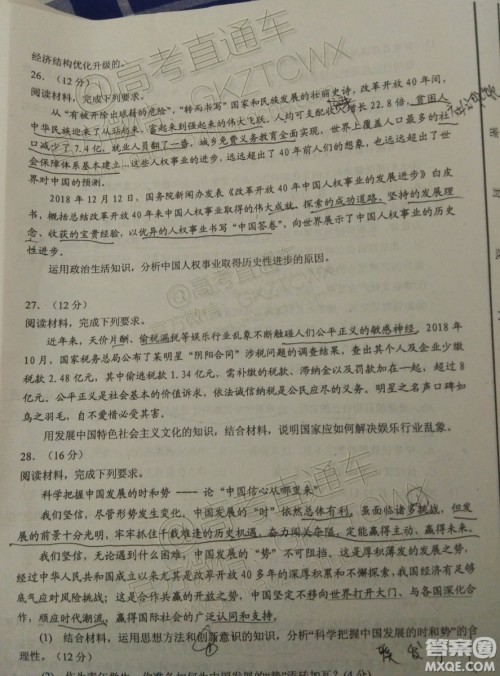 经济结构优化升级的。
26.（12分）
阅读材料，完成下列要求。
从“有被开除出球籍的危险”，“转而书写”国家和民族发展的壮丽史诗，改革开放40年间，
中华民族迎来了从站起来、富起来到强起来的伟大飞跃，人均可支配收入增长22.8倍，贫困人
口减少了7.4亿，就业人员翻了一番，城乡免费义务教育全面实现，世界上覆盖人口最多的社
会保障体系基本建立…这些人权事业的进步，远远超出了40年前人们的想象，也远远超出了世
界对中国的预测。
2018年12月12日，国务院新闻办发表《改革开放40年中国人权事业的发展进步》白皮
书，概括总结改革开放40年来中国人权事业取得的伟大成就、探索的成功道路、坚持的发展理
念、收获的宝贵经验，以优异的人权事业书写“中国答卷”，向世界展示了中国人权事业的历史
性进步。
运用政治生活知识，分析中国人权事业取得历史性进步的原因。
27.（12分）
阅读材料，完成下列要求。
近年来，天价片酬、偷税漏税等娱乐行业乱象不断触碰人们公平正义的敏感神经。2018
年10月，国家税务总局公布了某明星“阴阳合同”涉税问题的调查结果，查出其个人及企业少缴
税款2.48亿元，其中偷逃税款1.34亿元，需补缴的税款、滞纳金以及罚款加在一起，超过8
亿元。公平正义是社会基本的价值诉求，依法诚信纳税是公民应尽的义务。明星之名声口碑如
鸟之羽毛，自不爱惜必受其害。
用发展中国特色社会主义文化的知识，结合材料，说明国家应如何解决娱乐行业乱象。
28.（16分）
阅读材料，完成下列要求。
科学把握中国发展的时和势 ---- 论“中国信心从哪里来”
我们坚信，尽管形势发生变化，中国发展的“时”依然总体有利。虽面临诸多挑战，但发
展的前景十分光明，牢牢抓住千载难逢的历史机遇，奋力闯关夺隘，定能赢得主动、赢得未来。
我们坚信，无论遇到什么困难，中国发展的“势”不可阻挡。这是厚积薄发的发展之势，
经过中华人民共和国成立以来尤其是改革开放40多年的深厚积累和不懈探索，我国经济有足够
底气应对风险挑战；这是合作共赢的开放之势，中国坚定不移向世界打开大门、与各国深化合
作，顺应时代潮流，赢得国际社会的广泛认同和支持。
(1) 结合材料，运用思想方法和创新意识的知识，分析“科学把握中国发展的时和势”的合
理性。（12分）